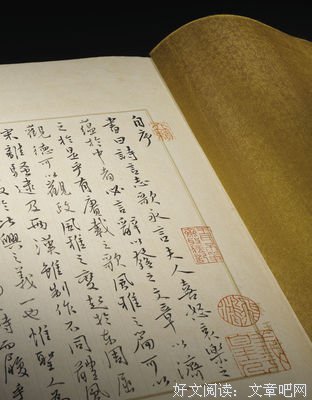 自序
書曰詩言志歌永言夫人喜怒哀樂之
蘊於中者必言辭以發之文章以濟
之於是乎有賡載之歌風雅之篇可以
觀德可以觀政風雅之變起於東周屈
宋離騷遠及兩漢雖制作不同體風
於比興之義一也惟聖人爲
時而履乎
好文阅读：文章吧网